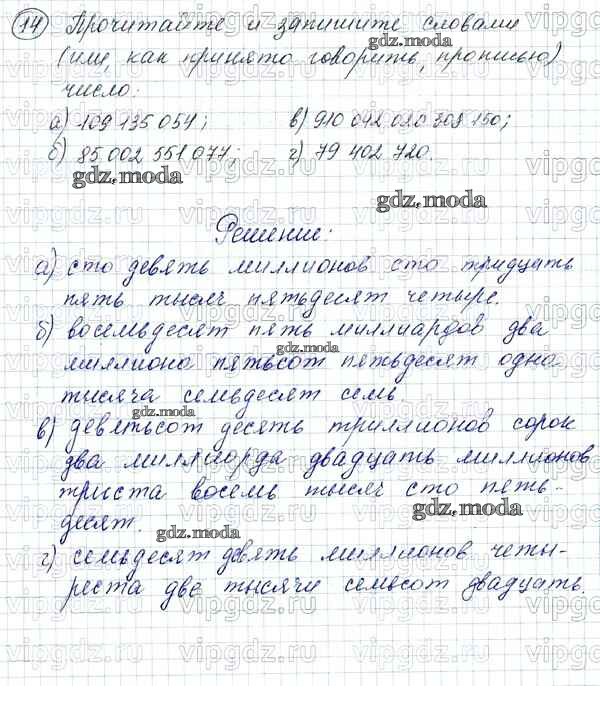 14 Прочитайте и запишите словами
(или, как принято говорить, прописью)
число:
а) 109 135 054; в) 910 042 020 308 150;
б) 85 002 551 077; г) 79 402 720.
Решение:
а) сто девять миллионов сто тридцать
пять тысяч пятьдесят четыре.
б) восемьдесят пять миллиардов два
миллиона пятьсот пятьдесят одна
тысяча семьдесят семь
в) девятьсот десять триллионов сорок
два миллиарда двадцать миллионов
триста восемь тысяч сто пять-
десят
г) семьдесят девять миллионов четы-
реста две тысячи семьсот двадцать.
gdz.moda
vipgdz.ru